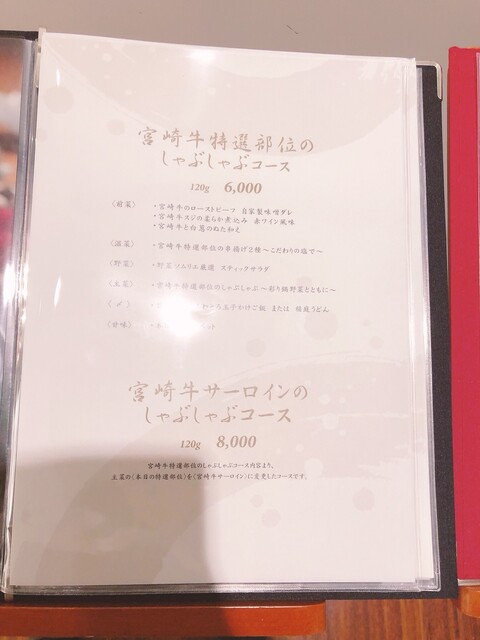 宮崎牛特選部位の
しゃぶしゃぶコース
120g 6,000
〈前菜〉 ・宮崎牛のローストビーフ 自家製味噌ダレ
・宮崎牛スジの柔らか煮込み 赤ワイン風味
・宮崎牛と白葱のぬた和え
〈温菜〉 ・宮崎牛特選部位の串揚げ2種～こだわりの塩で～
〈野菜〉 ・野菜ソムリエ厳選 スティックサラダ
〈主菜〉 ・宮崎牛特選部位のしゃぶしゃぶ～彩り鍋野菜とともに～
〈〆〉 玉子かけご飯 または 稲庭うどん
〈甘味〉
宮崎牛サーロインの
しゃぶしゃぶコース
120g 8,000
宮崎牛特選部位のしゃぶしゃぶコース内容より、
主菜の〈本日の特選部位〉を〈宮崎牛サーロイン〉に変更したコースです。